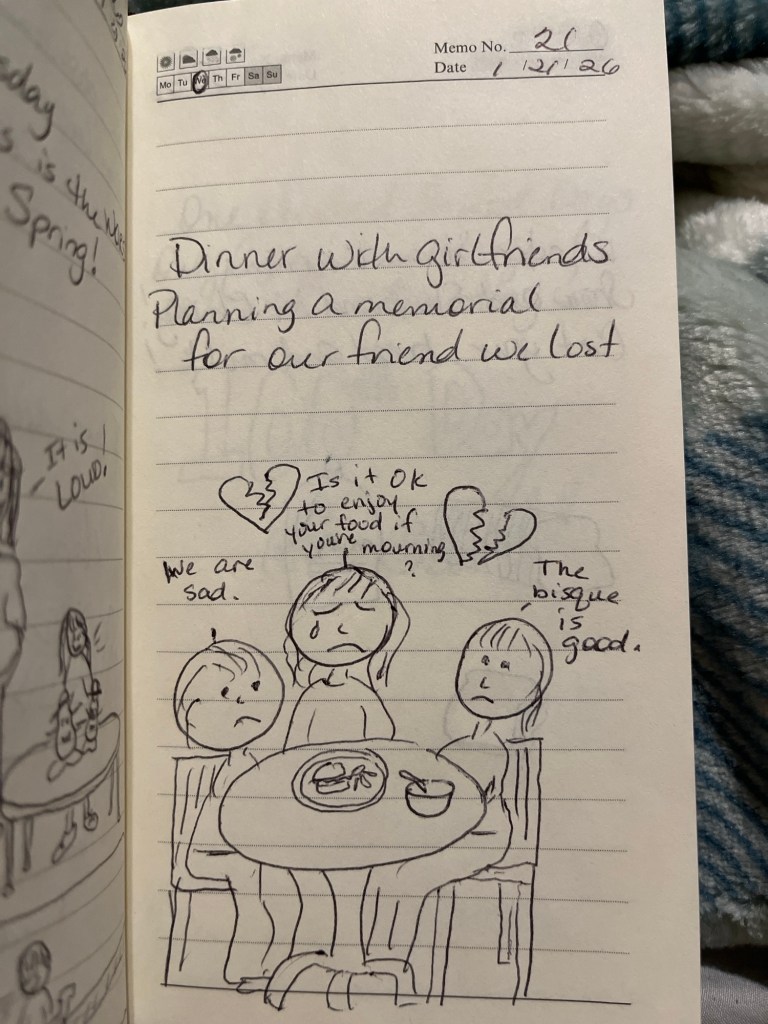 sday
s is the
Spring!
It is
LOUD!
Memo No. 21
Date 1/21/26
Mo Tu We Th Fr Sa Su
Dinner with girlfriends
Planning a memorial
for our friend we lost
Is it OK
to enjoy
your food if
youre mourning
?
We are
sad.
The
bisque
is
good.